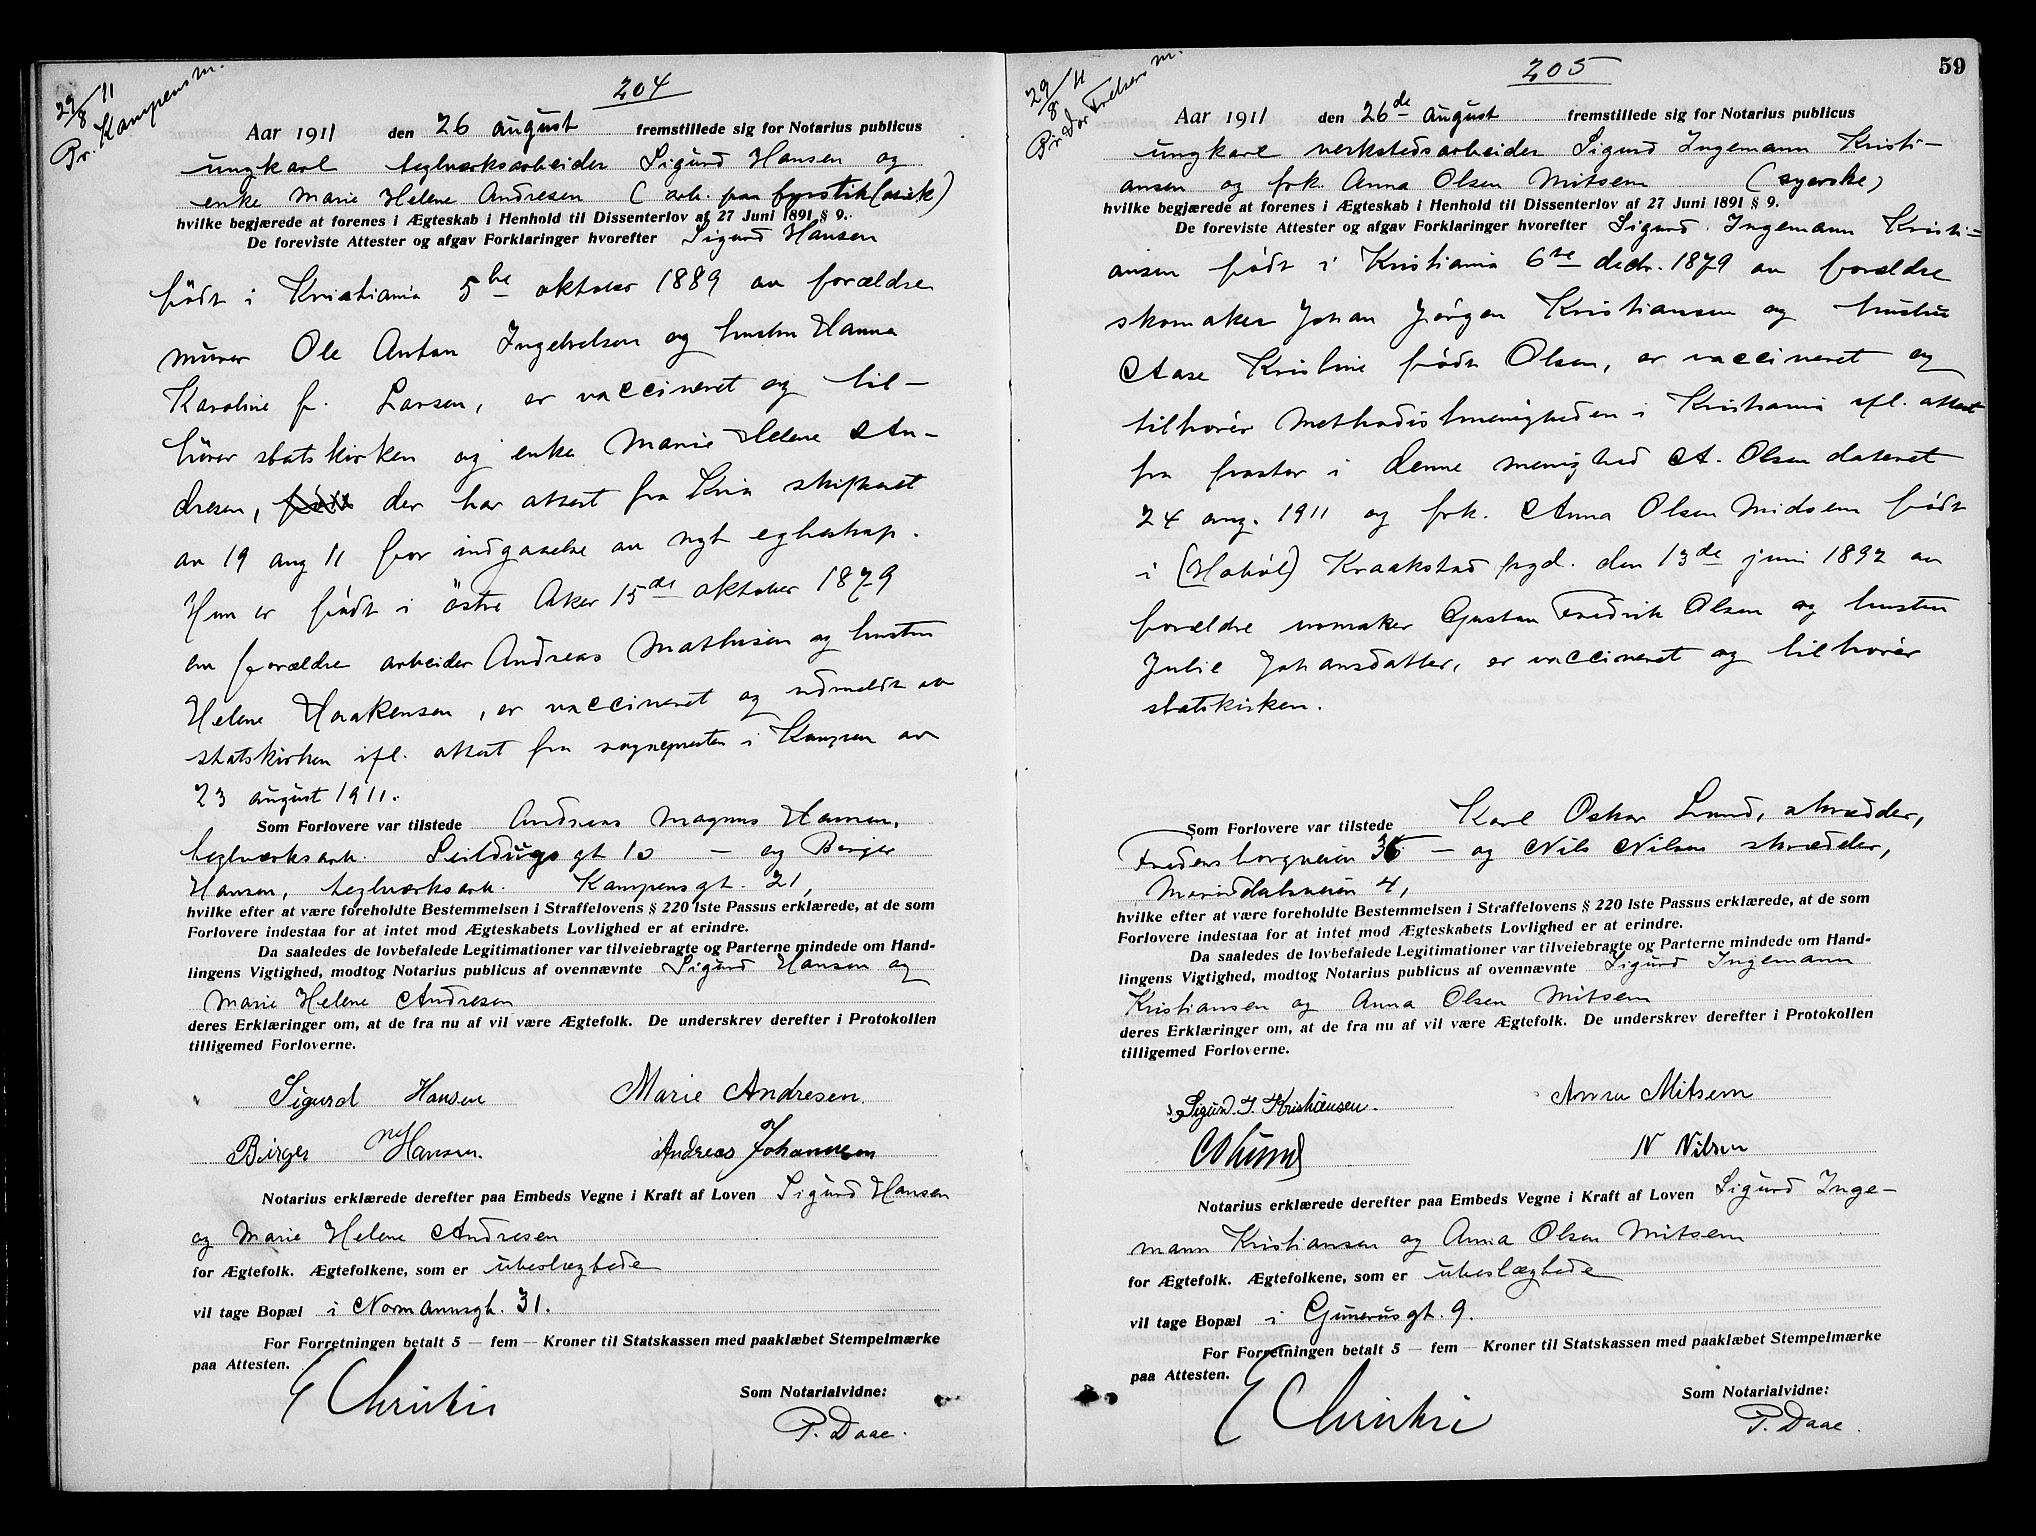 29/8 11
Pr. Kampens m.
204
Aar 1911 den 26 august fremstillede sig for Notarius publicus
ungkarl teglværksarbeider Sigurd Hansen og
enke Marie Helene Andresen (arb. paa fyrstik
hvilke begjærede at forenes i Ægteskab i Henhold til Dissenterlov af 27 Juni 1891 § 9.
De foreviste Attester og afgav Forklaringer hvorefter Sigurd Hansen
født i Kristiania 5te oktober 1889 av forældre
murer Ole Anton Ingebretsen og hustru Hanna
Karoline f. Larsen, er vaccineret og til-
hører statskirken og enke Marie Helene An-
dresen, der har attest fra Kria skifteret
av 19 aug 11 for indgaaelse av nyt egteskap.
Hun er født i østre Aker 15de oktober 1879
av forældre arbeider Andreas Mathisen og hustru
Helene Haakensen, er vaccineret og udmeldt av
statskirken ifl. attest fra sognepresten i Kampen av
23 august 1911.
Som Forlovere var tilstede Andreas Magnus
teglværksarb. Seildugsgt 10 – og Birger
Hansen, teglværksarb. Kampensgt. 21,
hvilke efter at være foreholdte Bestemmelsen i Straffelovens § 220 1ste Passus erklærede, at de som
Forlovere indestaa for at intet mod Ægteskabets Lovlighed er at erindre.
Da saaledes de lovbefalede Legitimationer var tilveiebragte og Parterne mindede om Hand-
lingens Vigtighed, modtog Notarius publicus af ovennævnte Sigurd Hansen og
Marie Helene Andresen
deres Erklæringer om, at de fra nu af vil være Ægtefolk. De underskrev derefter i Protokollen
tilligemed Forloverne.
Sigurd Hansen Marie Andresen
Birger Hansen. Andreas Johannesen
Notarius erklærede derefter paa Embeds Vegne i Kraft af Loven Sigurd Hansen
og Marie Helene Andresen
for Ægtefolk. Ægtefolkene, som er ubeslægtede
vil tage Bopæl i Normannsgt. 31.
For Forretningen betalt 5 — fem — Kroner til Statskassen med paaklæbet Stempelmærke
paa Attesten.
E Christie
Som Notarialvidne:
P. Daae.
59
29/8 11
Pr. Vor Frelsers m.
205
Aar 1911 den 26de august fremstillede sig for Notarius publicus
ungkarl verkstedsarbeider Sigurd Ingemann Kristi-
ansen og frk. Anna Olsen Mitsem (syerske)
hvilke begjærede at forenes i Ægteskab i Henhold til Dissenterlov af 27 Juni 1891 § 9.
De foreviste Attester og afgav Forklaringer hvorefter Sigurd Ingemann Kristi-
ansen født i Kristiania 6te decbr. 1879 av forældre
skomaker Johan Jørgen Kristiansen og hustru
Aase Kristine født Olsen, er vaccineret og
tilhører Methodistmenigheden i Kristiania ifl. attest
fra prestor i denne menighed A. Olsen dateret
24 aug. 1911 og frk. Anna Olsen Midsem født
i (Hobøl) Kraakstad pgd. den 13de juni 1892 av
forældre urmaker Gustav Fredrik Olsen og hustru
Julie Johansdatter, er vaccineret og tilhører
statskirken.
Som Forlovere var tilstede Karl Oskar Lund, skrædder,
Fredensborgveien 35 – og Nils Nilsen skrædder,
Mariddalsveien 4,
hvilke efter at være foreholdte Bestemmelsen i Straffelovens § 220 1ste Passus erklærede, at de som
Forlovere indestaa for at intet mod Ægteskabets Lovlighed er at erindre.
Da saaledes de lovbefalede Legitimationer var tilveiebragte og Parterne mindede om Hand-
lingens Vigtighed, modtog Notarius publicus af ovennævnte Sigurd Ingemann
Kristiansen og Anna Olsen Mitsem
deres Erklæringer om, at de fra nu af vil være Ægtefolk. De underskrev derefter i Protokollen
tilligemed Forloverne.
Sigurd. I. Kristiansen. Anna Mitsem
Lund N Nilsen
Notarius erklærede derefter paa Embeds Vegne i Kraft af Loven Sigurd Inge-
mann Kristiansen og Anna Olsen Mitsem
for Ægtefolk. Ægtefolkene, som er ubeslægtede
vil tage Bopæl i Gunerusgt. 9.
For Forretningen betalt 5 — fem — Kroner til Statskassen med paaklæbet Stempelmærke
paa Attesten.
E Christie
Som Notarialvidne:
P. Daae.